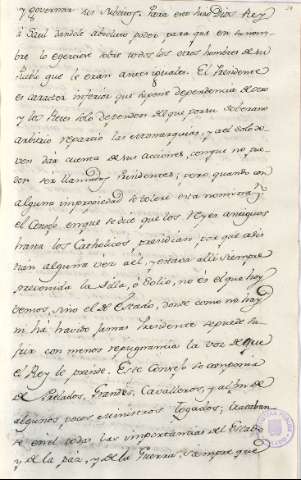 y governar sus subditos. Para eso hizo Dios Rey
à Saul dandole absoluto poder para que en su nom
bre lo exerciese sobre todos los otros hombres de su
Pueblo que le eran antes iguales. El Presidente
es caracter inferior que supone dependencia de otro
y los Reyes solo dependen de que por su soberano
arbitrio repartió las Monarquias, y à el solo de-
ven dar cuenta de sus acciones, con que no pue-
den ser llamados Presidentes; pero quando con
alguna impropiedad se tolere esta nominaz.n
el Consejo en que se dice que los Reyes antiguos
hasta los Catholicos presidian por que asis
tian alguna vez à el, y estava alli siempre
prevenida la Silla, ò Solio, no es el que hoy
vemos, sino el de Estado, donde como no hay
ni há havido jamas Presidente se puede su
frir con menos repugnancia la voz de que
el Rey le preside. Este Consejo se componia
de Prelados, Grandes, Cavalleros, y al fin de
algunos pocos Ministros Togados; trataban
se en el todas las importancias del Estado
y de la paz, y de la Guerra, siempre que